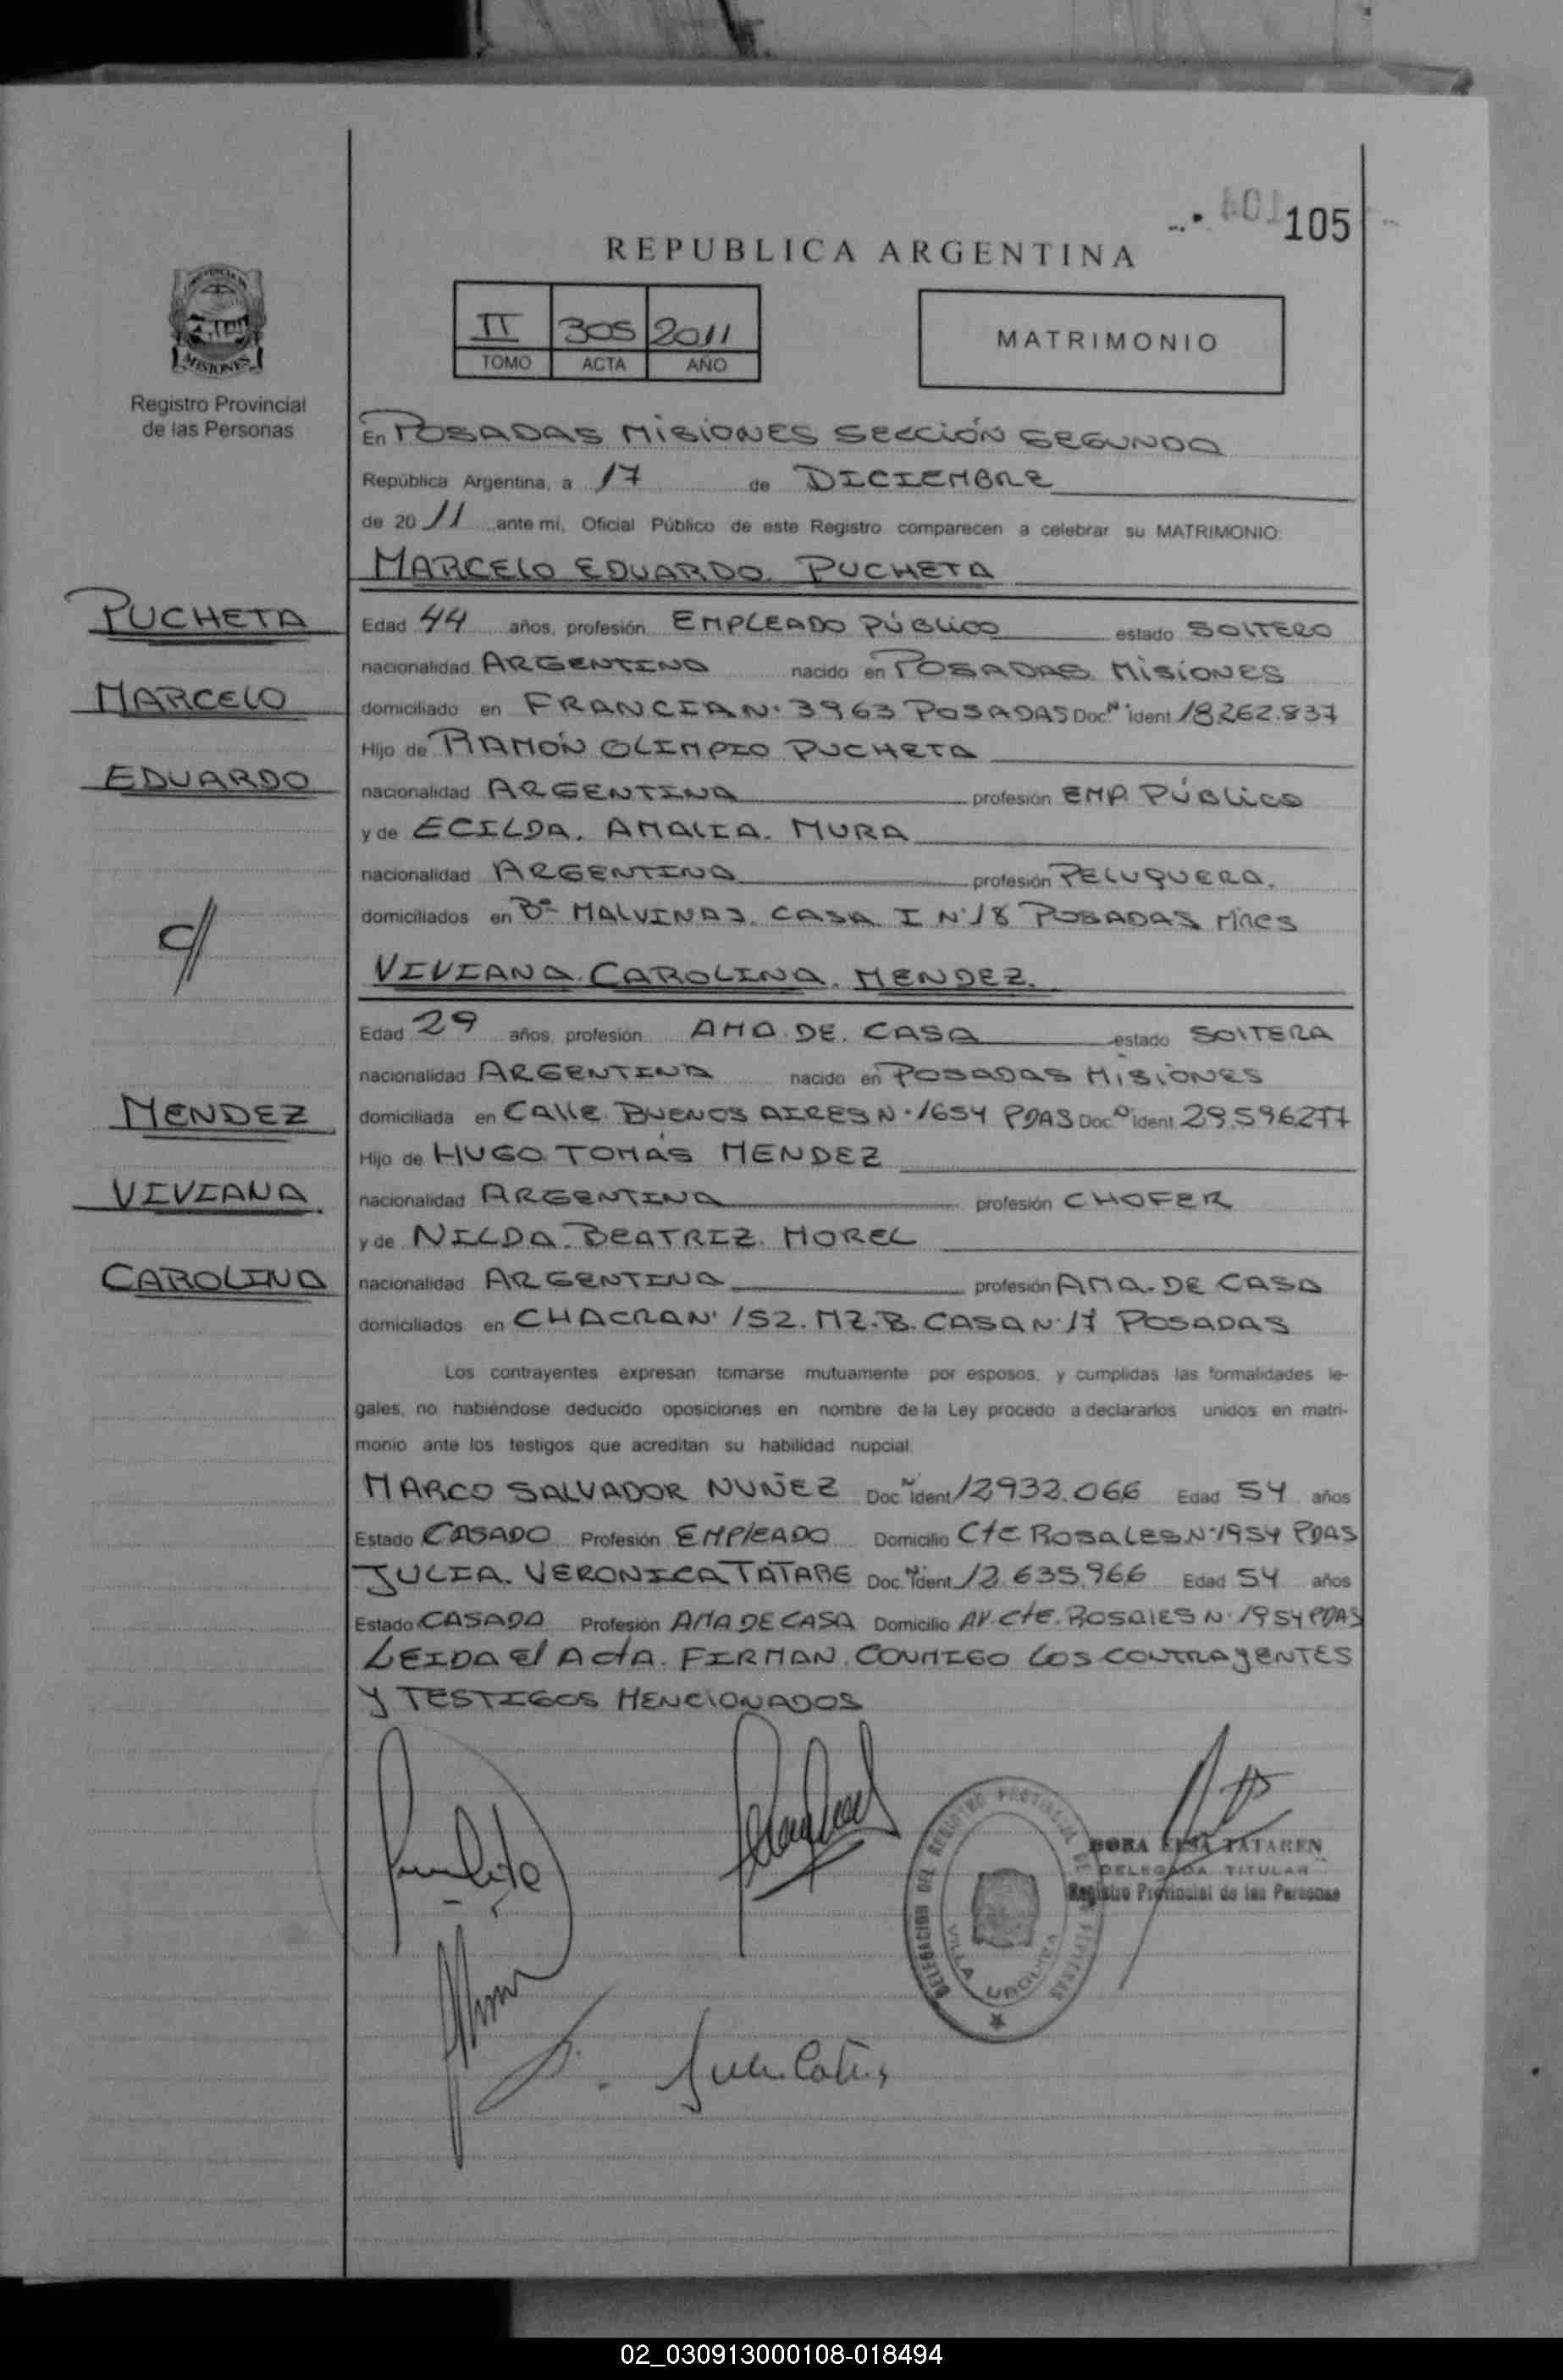 105
REPUBLICA ARGENTINA
II 305 2011
TOMO ACTA AÑO
MATRIMONIO
MISIONES
Registro Provincial
de las Personas
En POSADAS MISIONES SECCIÓN SEGUNDA
República Argentina, a 17 de DICIEMBRE
de 2011 ante mi, Oficial Público de este Registro comparecen a celebrar su MATRIMONIO:
MARCELO EDUARDO PUCHETA
PUCHETA
MARCELO
EDUARDO
Edad 44 años, profesión EMPLEADO PÚBLICO estado SOLTERO
nacionalidad ARGENTINA nacido en POSADAS MISIONES
domiciliado en FRANCIA N· 3963 POSADAS Doc. N° ident 18.262.837
Hijo de RAMÓN OLIMPIO PUCHETA
nacionalidad ARGENTINA profesión EMP. PÚBLICO
y de ECILDA. AMALIA. MURA
nacionalidad ARGENTINA profesión PELUQUERA.
domiciliados en B° MALVINAS. CASA I N°18 POSADAS Mnes
c//
VIVIANA CAROLINA. MENDEZ.
Edad 29 años, profesión AMA DE CASA estado SOLTERA
nacionalidad ARGENTINA nacido en POSADAS MISIONES
MENDEZ
VIVIANA.
CAROLINA
domiciliada en CALLE BUENOS AIRES N·1654 PDAS Doc. N° ident 29.596277
Hijo de HUGO TOMÁS MENDEZ
nacionalidad ARGENTINA profesión CHOFER
y de NILDA. BEATRIZ. MOREL
nacionalidad ARGENTINA profesión AMA. DE CASA
domiciliados en CHACRA N° 152. MZ. B. CASA N·17 POSADAS
Los contrayentes expresan tomarse mutuamente por esposos, y cumplidas las formalidades le-
gales, no habiéndose deducido oposiciones en nombre de la Ley procedo a declararlos unidos en matri-
monio ante los testigos que acreditan su habilidad nupcial.
MARCO SALVADOR NUÑEZ Doc. N° ident 12932.066 Edad 54 años
Estado CASADO Profesión EMPLEADO Domicilio Cte. ROSALES N·1954 PDAS
JULIA. VERONICA TATARE Doc. N° ident 12.635.966 Edad 54 años
Estado CASADA Profesión AMA DE CASA Domicilio AV. Cte. ROSALES N·1954 PDAS
LEIDA el ActA. FIRMAN. CONMIGO LOS CONTRAyENTES
y TESTIGOS MENCIONADOS
DELEGACION DEL REGISTRO PROVINCIAL DE LAS PERSONAS
VILLA URQUIZA
DORA ELSA TATAREN
DELEGADA TITULAR
Registro Provincial de las Personas
02_030913000108-018494